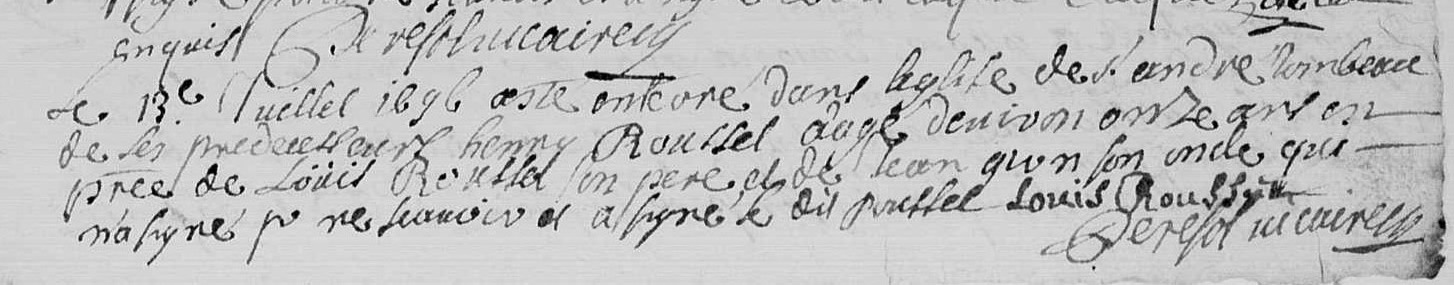 enquis Deresol vicaire
Le 13e Juillet 1696 a esté enterré dans leglise de st andre tombeau
de ses predecesseurs henry Roussel aagé denviron onze ans en
pree de Loüis Roussel son pere et de Jean gion son oncle qui
n'a signé pr ne scauoir et a signé le dit roussel Louis Roussel
Deresol vicaire